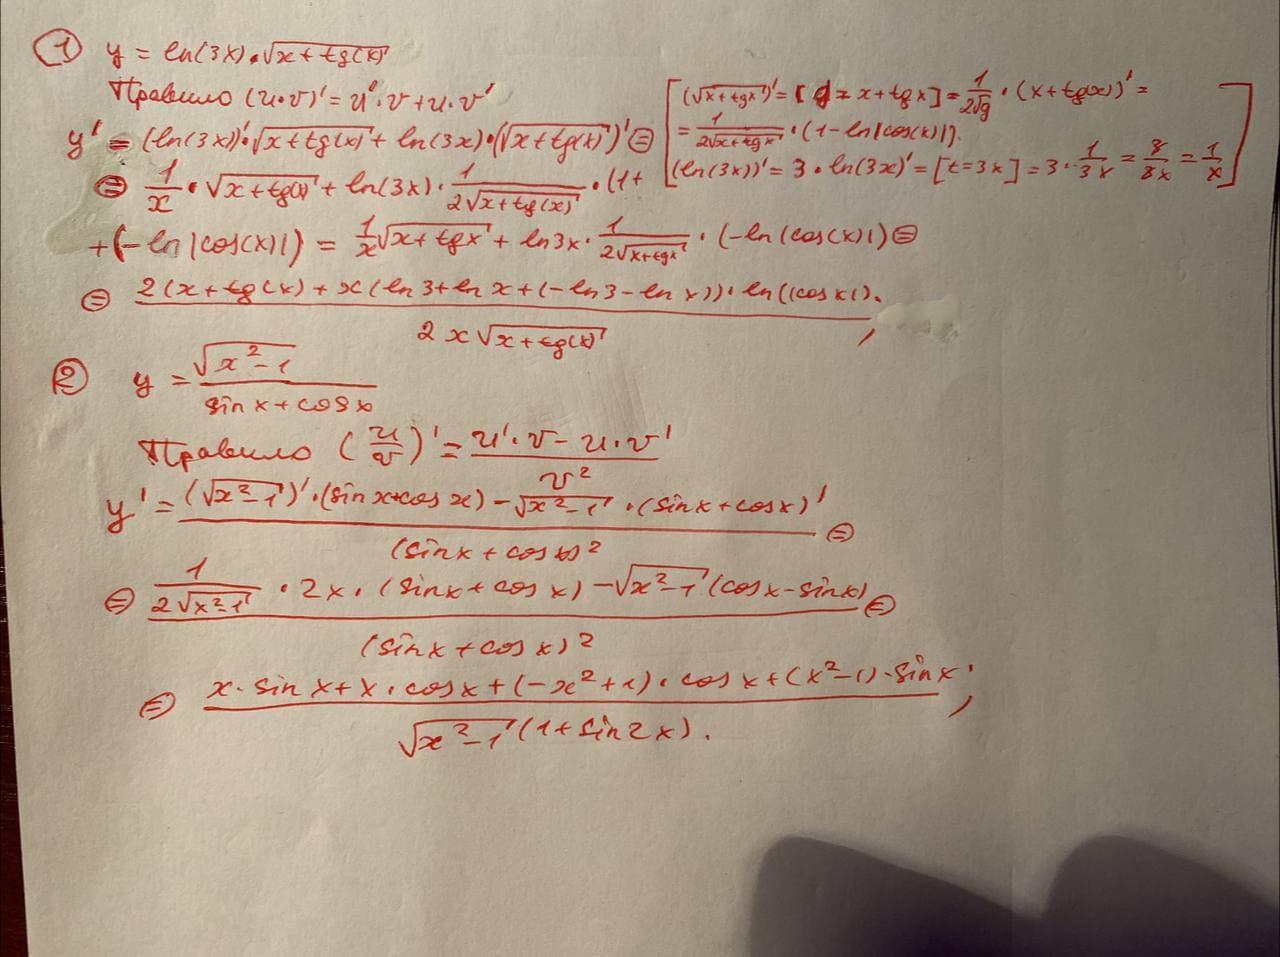 ① y = ln(3x)·√(x+tg(x))
Правило (u·v)' = u'·v+u·v'
[(√(x+tgx))' = [g = x+tgx] = 1/(2√g) · (x+tg(x))' =
= 1/(2√(x+tgx)) · (1-ln|cos(x)|).
(ln(3x))' = 3·ln(3x)' = [t=3x] = 3·1/3x = 3/3x = 1/x]
y' = (ln(3x))'·√(x+tg(x)) + ln(3x)·(√(x+tg(x)))' ⊜
⊜ 1/x · √(x+tg(x)) + ln(3x) · 1/(2√(x+tg(x))) · (1+
+(-ln|cos(x)|) = 1/x √(x+tgx) + ln3x · 1/(2√(x+tgx)) · (-ln(cos(x)|) ⊜
⊜ 2(x+tg(x)+x(ln3+lnx+(-ln3-lnx))·ln((cosx|).
2x√(x+tg(x)) ,
② y = √(x²-1) / (sinx+cosx)
Правило (u/v)' = (u'·v - u·v') / v²
y' = ((√(x²-1))'·(sinx+cosx) - √(x²-1)·(sinx+cosx)') / (sinx+cosx)² ⊜
⊜ (1/(2√(x²-1)) · 2x·(sinx+cosx) - √(x²-1)(cosx-sinx)) / (sinx+cosx)² ⊜
⊜ (x·sinx+x·cosx+(-x²+1)·cosx+(x²-1)·sinx) / (√(x²-1)(1+sin2x)).